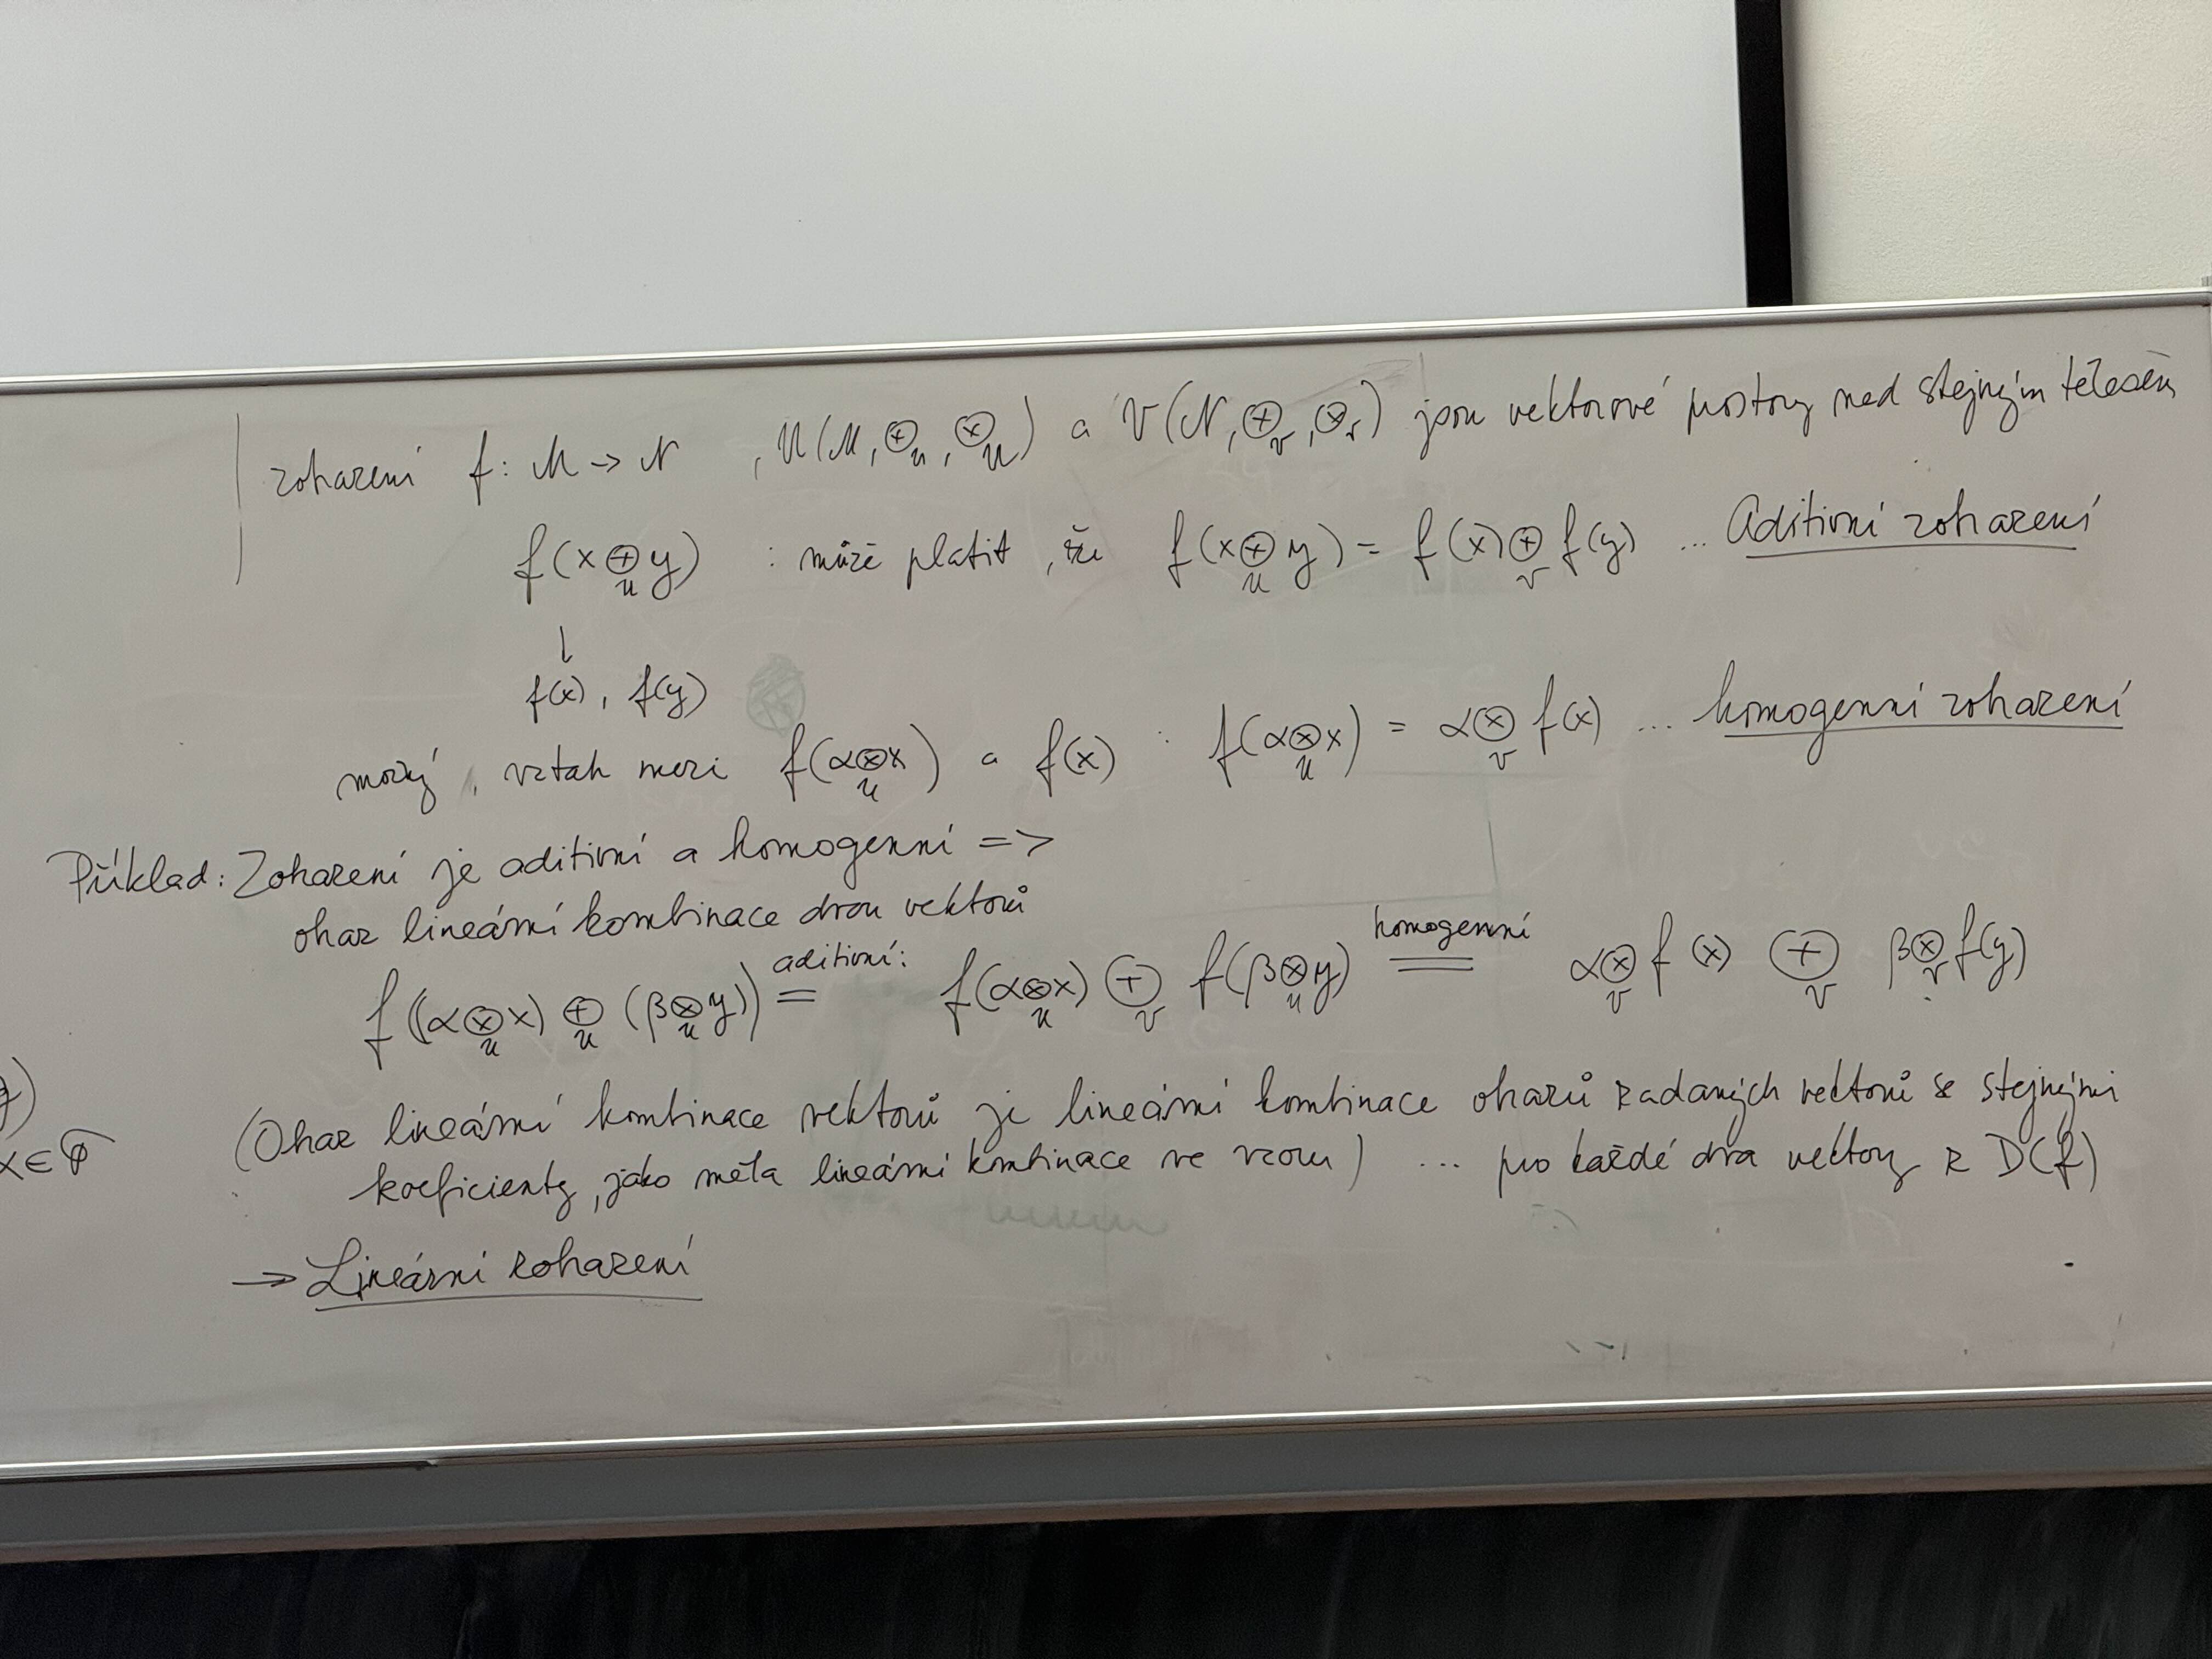 zobrazení f: M → N , U(M, ⊕_u, ⊗_u) a V(N, ⊕_v, ⊗_v) jsou vektorové prostory nad stejným tělesem
f(x ⊕_u y) : může platit, že f(x ⊕_u y) = f(x) ⊕_v f(y) ... Aditivní zobrazení
↓
f(x), f(y)
vztah mezi f(α ⊗_u x) a f(x) : f(α ⊗_u x) = α ⊗_v f(x) ... homogenní zobrazení
Příklad: Zobrazení je aditivní a homogenní =>
obraz lineární kombinace dvou vektorů
f((α ⊗_u x) ⊕_u (β ⊗_u y)) aditivní: = f(α ⊗_u x) ⊕_v f(β ⊗_u y) homogenní = α ⊗_v f(x) ⊕_v β ⊗_v f(y)
(Obraz lineární kombinace vektorů je lineární kombinace obrazů zadaných vektorů se stejnými
α ∈ φ koeficienty, jako měla lineární kombinace ve vzoru) ... pro každé dva vektory z D(f)
→ Lineární zobrazení